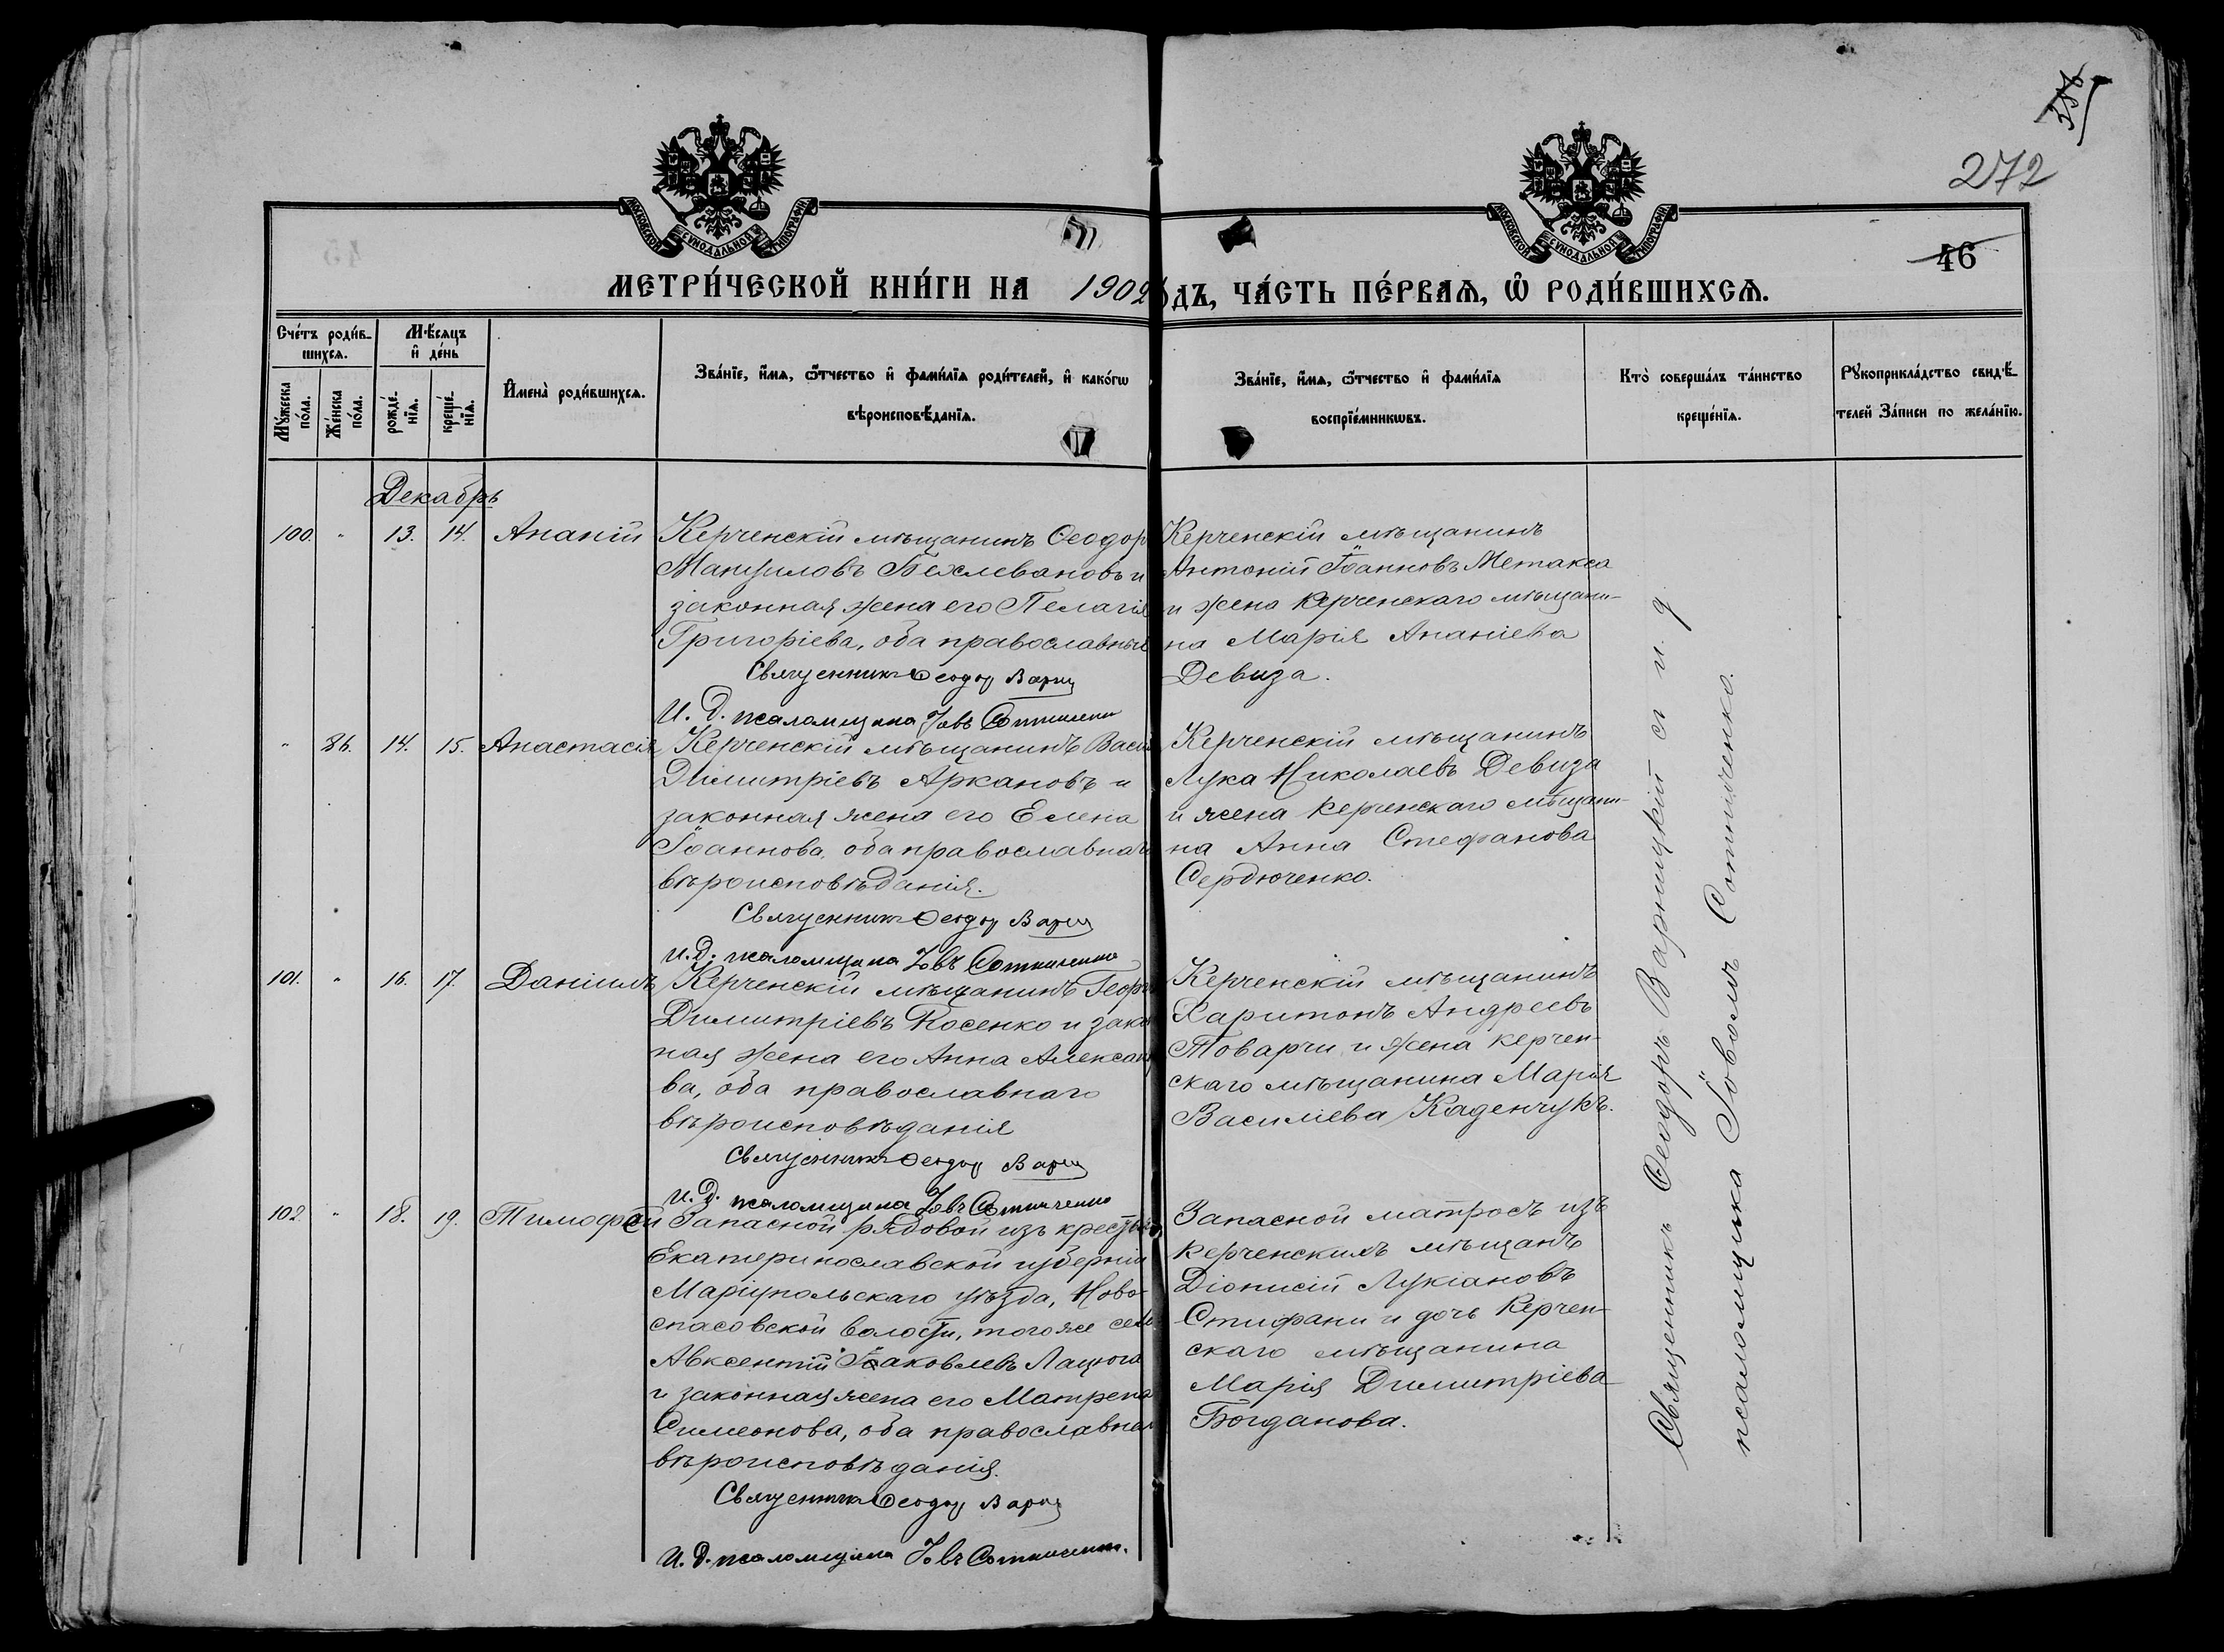 358
272
46
МОСКОВСКОЙ СѴНОДАЛЬНОЙ ТИПОГРАФІИ
МОСКОВСКОЙ СѴНОДАЛЬНОЙ ТИПОГРАФІИ
МЕТРИ́ЧЕСКОЙ КНИ́ГИ НА 1902
ДЪ, ЧА́СТЬ ПЕ́РВАѦ, Ѡ҆ РОДИ́ВШИХСѦ.
Сче́тъ роди́в-
шихсѧ.
Мꙋ́жеска
по́ла.
Же́нска
по́ла.
Мѣ́сѧцъ
и҆ де́нь
рожде́-
нїѧ.
креще́-
нїѧ.
И҆мена̀ роди́вшихсѧ.
Зва́нїе, и҆́мѧ, ѻ҆́тчество и҆ фами́лїѧ роди́телей, и҆ како́гѡ
вѣроисповѣ́данїѧ.
Зва́нїе, и҆́мѧ, ѻ҆́тчество и҆ фами́лїѧ
воспрїе́мникѡвъ.
Кто̀ соверша́лъ та́инство
креще́нїѧ.
Рꙋкоприкла́дство свидѣ́-
телей За́писи по жела́нїю.
Декабрь
100. " 13. 14. Ананій
Керченскій мѣщанинъ Ѳеодор
Мануиловъ Бехлевановъ и
законная жена его Пелагія
Григоріева, оба православные
Священникъ Ѳеодор Варн
И. д. псаломщика Іовъ Сотниченко
Керченскій мѣщанинъ
Антоній Іоанновъ Метакса
и жена керченскаго мѣщани-
на Марія Ананіева
Девиза.
" 86. 14. 15. Анастасія
Керченскій мѣщанинъ Васи
Димитріевъ Аркановъ и
законная жена его Елена
Іоаннова, оба православнаго
вѣроисповѣданія.
Священникъ Ѳеодор Варн
И. д. псаломщика Іовъ Сотниченко
Керченскій мѣщанинъ
Лука Николаевъ Девиза
и жена керченскаго мѣщани-
на Анна Стефанова
Сердюченко.
101. " 16. 17. Даніилъ
Керченскій мѣщанинъ Георг
Димитріевъ Косенко и закон
ная жена его Анна Алексан
ва, оба православнаго
вѣроисповѣданія
Священникъ Ѳеодор Варн
И. д. псаломщика Іовъ Сотниченко
Керченскій мѣщанинъ
Харитонъ Андреевъ
Товарчи и жена керчен-
скаго мѣщанина Марія
Василіева Каденчукъ.
102. " 18. 19. Тимофей
Запасной рядовой изъ крестьян
Екатеринославской губерніи
Маріупольскаго уѣзда, Ново-
спасовской волости, того же села
Авксентій Іаковлевъ Лацюга
и законная жена его Матрена
Симеонова, оба православнаго
вѣроисповѣданія.
Священникъ Ѳеодор Варн
И. д. псаломщика Іовъ Сотниченко.
Запасной матросъ изъ
керченскихъ мѣщанъ
Діонисій Лукіановъ
Стифани и дочь Керчен-
скаго мѣщанина
Марія Димитріева
Богданова.
Священникъ Ѳеодоръ Варницкій съ и. д.
псаломщика Іовомъ Сотниченко.